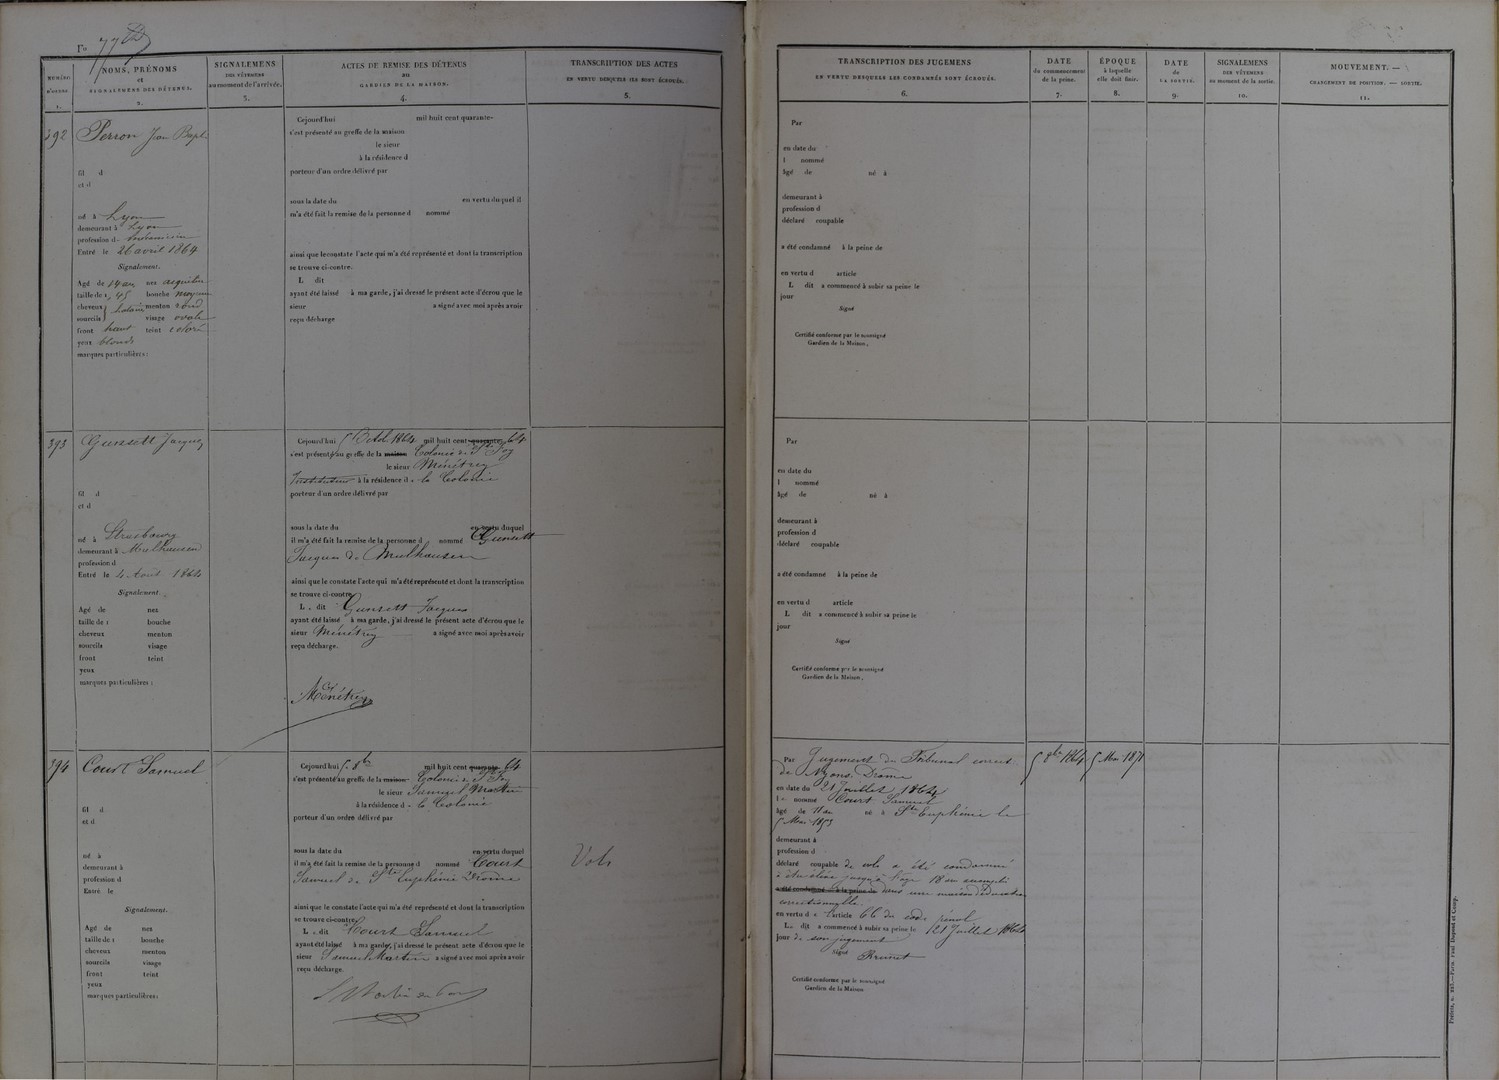 Fo 77
NUMÉRO D'ORDRE. 1.
NOMS, PRÉNOMS
et
SIGNALEMENS DES DÉTENUS.
2.
SIGNALEMENS
DES VÊTEMENS
au moment de l'arrivée.
3.
ACTES DE REMISE DES DÉTENUS
au
GARDIEN DE LA MAISON.
4.
TRANSCRIPTION DES ACTES
EN VERTU DESQUELS ILS SONT ÉCROUÉS.
5.
392
Perron Jean Bapt
fil d
et d
né à Lyon
demeurant à Lyon
profession d
Entré le 26 avril 1864
Signalement.
Agé de 14 ans nez aquilin
taille de 1, 45 bouche moyenne
cheveux menton rond
sourcils visage ovale
front haut teint coloré
yeux blonds
marques particulières :
Cejourd'hui mil huit cent quarante-
s'est présenté au greffe de la maison
le sieur
à la résidence d
porteur d'un ordre délivré par
sous la date du en vertu duquel il
m'a été fait la remise de la personne d nommé
ainsi que le constate l'acte qui m'a été représenté et dont la transcription
se trouve ci-contre.
L dit
ayant été laissé à ma garde, j'ai dressé le présent acte d'écrou que le
sieur a signé avec moi après avoir
reçu décharge
393
Gunsett Jacques
fil d
et d
né à Strasbourg
demeurant à Mulhausen
profession d
Entré le 4 Aout 1864
Signalement.
Agé de nez
taille de 1 bouche
cheveux menton
sourcils visage
front teint
yeux
marques particulières :
Cejourd'hui 5 Octob 1864 mil huit cent quarante 64
s'est présenté au greffe de la maison Colonie de Ste Foy
le sieur Ménétrey
Instituteur à la résidence d la Colonie
porteur d'un ordre délivré par
sous la date du en vertu duquel
il m'a été fait la remise de la personne d nommé Gunsett
Jacques de Mulhausen
ainsi que le constate l'acte qui m'a été représenté et dont la transcription
se trouve ci-contre
L. dit Gunsett Jacques
ayant été laissé à ma garde, j'ai dressé le présent acte d'écrou que le
sieur Ménétrey a signé avec moi après avoir
reçu décharge.
Ménétrey
394
Court Samuel
fil d
et d
né à
demeurant à
profession d
Entré le
Signalement.
Agé de nez
taille de 1 bouche
cheveux menton
sourcils visage
front teint
yeux
marques particulières:
Cejourd'hui 5 8bre mil huit cent quarante 64
s'est présenté au greffe de la maison Colonie de Ste Foy
le sieur Samuel Martin
à la résidence d la Colonie
porteur d'un ordre délivré par
sous la date du en vertu duquel
il m'a été fait la remise de la personne d nommé Court
Samuel de Ste Euphémie Drôme
ainsi que le constate l'acte qui m'a été représenté et dont la transcription
se trouve ci-contre.
L. dit Court Samuel
ayant été laissé à ma garde, j'ai dressé le présent acte d'écrou que le
sieur Samuel Martin a signé avec moi après avoir
reçu décharge.
Vols
TRANSCRIPTION DES JUGEMENS
EN VERTU DESQUELS LES CONDAMNÉS SONT ÉCROUÉS.
6.
DATE
du commencement
de la peine.
7.
ÉPOQUE
à laquelle
elle doit finir.
8.
DATE
de
LA SORTIE.
9.
SIGNALEMENS
DES VÊTEMENS
au moment de la sortie.
10.
MOUVEMENT. —
CHANGEMENT DE POSITION. — SORTIE.
11.
Par
en date du
l nommé
âgé de né à
demeurant à
profession d
déclaré coupable
a été condamné à la peine de
en vertu d article
L dit a commencé à subir sa peine le
jour
Signé
Certifié conforme par le soussigné
Gardien de la Maison,
Par
en date du
l nommé
âgé de né à
demeurant à
profession d
déclaré coupable
a été condamné à la peine de
en vertu d article
L dit a commencé à subir sa peine le
jour
Signé
Certifié conforme par le soussigné
Gardien de la Maison,
Par Jugement du Tribunal correct
de Nyons. Drôme
en date du 21 Juillet 1864
l nommé Court Samuel
âgé de 11 ans né à Ste Euphémie le
5 Mai 1853
demeurant à
profession d
déclaré coupable de vols a été condamné
à être élevé jusqu'à l'age 18 ans accompli
a été condamné à la peine de dans une maison d'éducation
correctionnelle.
en vertu d l'article 66 du code pénal
L. dit a commencé à subir sa peine le 21 Juillet 1864
jour de son jugement
Signé
Brunet
Certifié conforme par le soussigné
Gardien de la Maison
5 8bre 1864
5 Mai 1871
Paris. Paul Dupont et Comp.